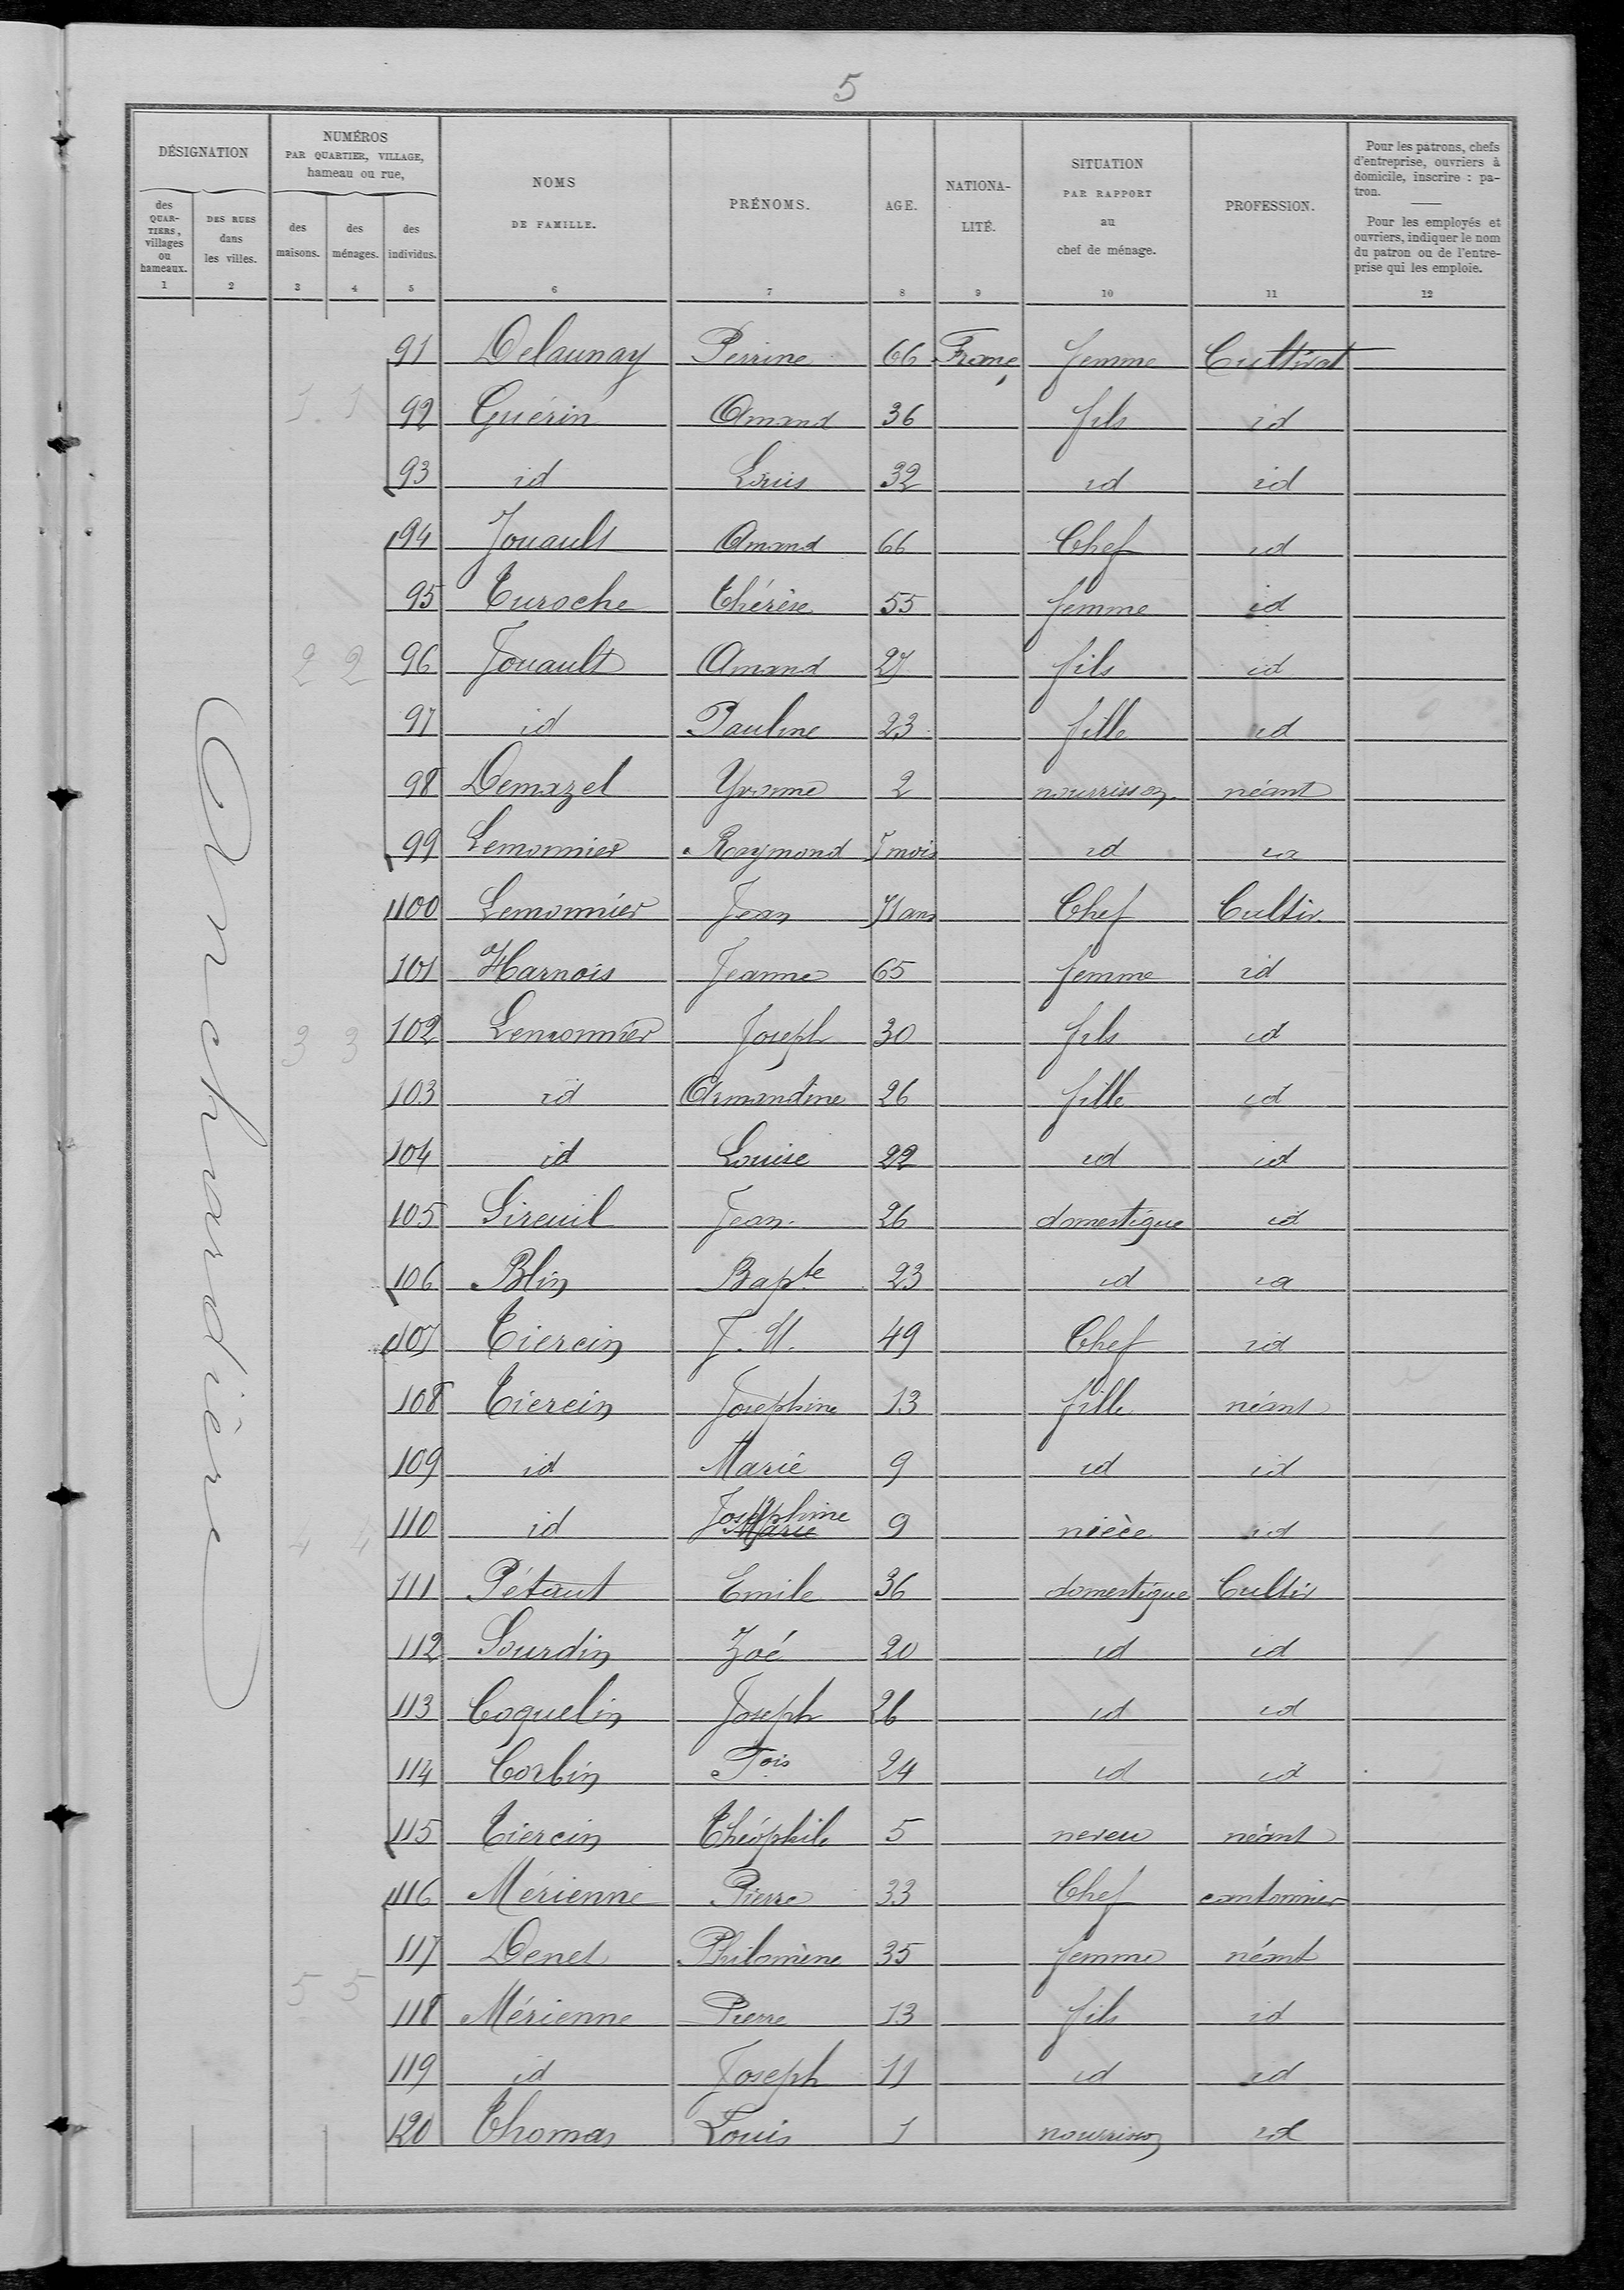 5
DÉSIGNATION
NUMÉROS
PAR QUARTIER, VILLAGE,
hameau ou rue,
des QUAR-TIERS, villages ou hameaux.
DES RUES dans les villes.
des maisons.
des ménages.
des individus.
NOMS
DE FAMILLE.
PRÉNOMS.
AGE.
NATIONA-
LITÉ.
SITUATION
PAR RAPPORT
au
chef de ménage.
PROFESSION.
Pour les patrons, chefs
d'entreprise, ouvriers à
domicile, inscrire : pa-
tron.
Pour les employés et
ouvriers, indiquer le nom
du patron ou de l'entre-
prise qui les emploie.
1 2 3 4 5 6 7 8 9 10 11 12
91 Delaunay Perrine 66 Franç femme Cultivat
1 1 92 Guérin Amand 36 fils id
93 id Louis 32 id id
94 Jouault Amand 66 Chef id
95 Turoche Thérèse 55 femme id
2 2 96 Jouault Amand 27 fils id
97 id Pauline 23 fille id
98 Demazel Yvonne 2 nourrisson néant
99 Lemonnier Raymond 5 mois id id
100 Lemonnier Jean 71 ans Chef Cultiv.
101 Harnois Jeanne 65 femme id
3 3 102 Lemonnier Joseph 30 fils id
103 id Armandine 26 fille id
104 id Louise 22 id id
105 Sireuil Jean 26 domestique id
106 Blin Bapte 23 id id
107 Tiercin J. M. 49 Chef id
108 Tiercin Joséphine 13 fille néant
109 id Marie 9 id id
4 4 110 id Joséphine Marie 9 nièce id
111 Pétaut Emile 36 domestique Cultiv
112 Sourdin Zoé 20 id id
113 Coquelin Joseph 26 id id
114 Corbin Fois 24 id id
115 Tiercin Théophile 5 neveu néant
116 Mérienne Pierre 33 Chef cantonnier
117 Denet Philomène 35 femme néant
5 5 118 Mérienne Pierre 13 fils id
119 id Joseph 11 id id
120 Thomas Louis 1 nourrisson id